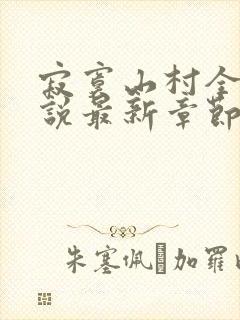 寂寞山村全
說最新章節
朱塞佩 加羅